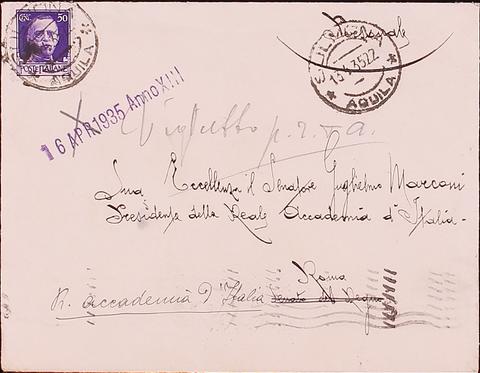 CENT. 50
POSTE ITALIANE
SULMONA
13.4.35.22
* AQUILA *
Personale
16 APR 1935 Anno XIII
Viglietto p.r.
Sua Eccellenza il Senatore Guglielmo Marconi
Presidente della Reale Accademia d'Italia -
Roma
R. Accademia D'Italia Senato del Regno